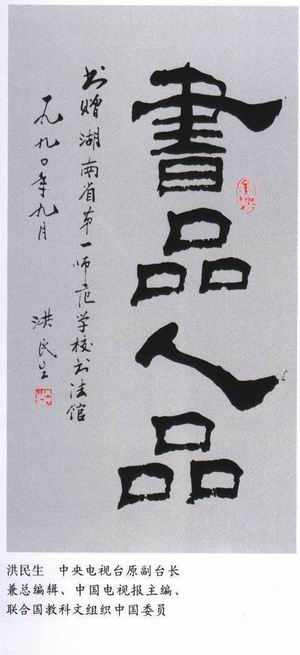 書品人品
书赠湖南省第一师范学校书法馆
一九九〇年九月
洪民生
洪民生 中央电视台原副台长
兼总编辑、中国电视报主编、
联合国教科文组织中国委员